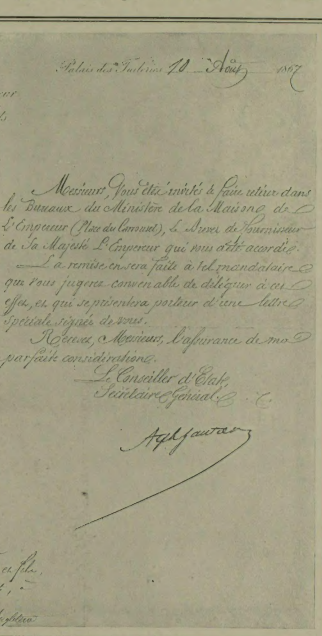 Palais des Tuileries 10 Août 1867
Messieurs, Vous êtes invités à faire retirer dans
les Bureaux du Ministère de la Maison de
L'Empereur (Place du Carrousel), le Brevet de Fournisseur
de Sa Majesté L'Empereur qui vous a été accordé.
La remise en sera faite à tel mandataire
que vous jugerez convenable de déléguer à cet
effet, et qui se présentera porteur d'une lettre
spéciale signée de vous.
Recevez, Messieurs, l'assurance de ma
parfaite considération.
Le Conseiller d'Etat,
Secrétaire Général
et fils.